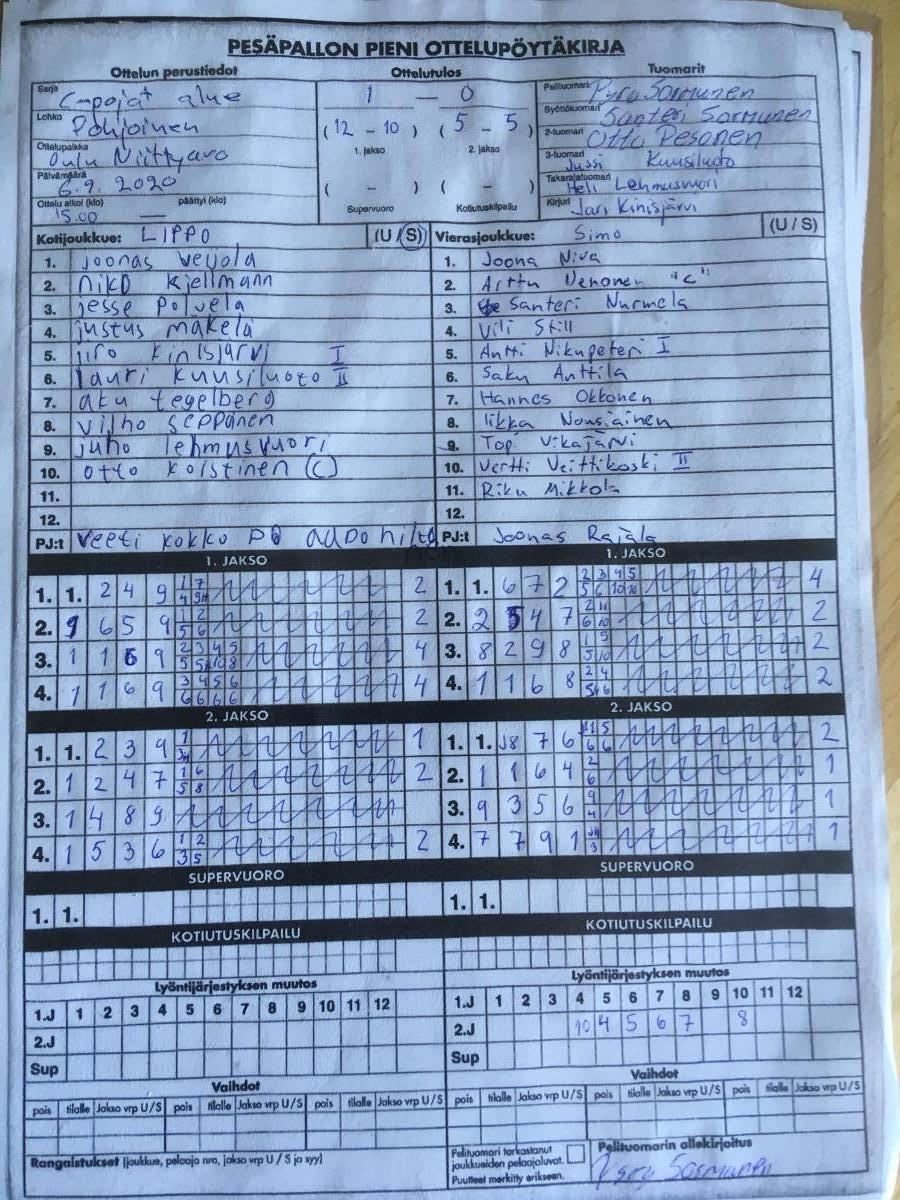 PESÄPALLON PIENI OTTELUPÖYTÄKIRJA
Ottelun perustiedot
Sarja C-pojat alue
Lohko Pohjoinen
Ottelupaikka Oulu Niittyaro
Päivämäärä 6.9.2020
Ottelu alkoi (klo) päättyi (klo)
15.00 —
Ottelutulos
1 — 0
(12 - 10) (5 - 5)
1. jakso 2. jakso
( - ) ( - )
Supervuoro Kotiutuskilpailu
Tuomarit
Pelituomari Pyry Sormunen
Syöttötuomari Santeri Sormunen
2-tuomari Otto Pesonen
3-tuomari Jussi Kuusiluoto
Takarajatuomari Heli Lehmusvuori
Kirjuri Jari Kinisjärvi
Kotijoukkue: LIPPO (U / S)
1. Joonas Veijola
2. niko kjellmann
3. jesse polvela
4. justus mäkelä
5. jiro kinisjärvi I
6. lauri kuusiluoto II
7. aku tegelberg
8. vilho seppänen
9. juho lehmusvuori
10. otto koistinen (C)
11.
12.
PJ:t veeti kokko
Vierasjoukkue: Simo (U / S)
1. Joona Niva
2. Arttu Nenonen "C"
3. Santeri Nurmela
4. Vili Still
5. Antti Nikupeteri I
6. Saku Anttila
7. Hannes Okkonen
8. Iikka Nousiainen
9. Topi Vikajärvi
10. Vertti Veittikoski II
11. Riku Mikkola
12.
PJ:t Joonas Rajala
1. JAKSO
1. 1. 2 4 9 2
2. 9 6 5 9 2
3. 1 1 6 9 4
4. 1 1 6 9 4
1. JAKSO
1. 1. 6 7 2 4
2. 2 5 4 7 2
3. 8 2 9 8 2
4. 1 1 6 8 2
2. JAKSO
1. 1. 2 3 9 1
2. 1 2 4 7 2
3. 1 4 8 9
4. 1 5 3 6 2
2. JAKSO
1. 1. J8 7 6 2
2. 1 1 6 4 1
3. 9 3 5 6 1
4. 7 7 9 1 1
SUPERVUORO
1. 1.
SUPERVUORO
1. 1.
KOTIUTUSKILPAILU
KOTIUTUSKILPAILU
Lyöntijärjestyksen muutos
1.J 1 2 3 4 5 6 7 8 9 10 11 12
2.J
Sup
Lyöntijärjestyksen muutos
1.J 1 2 3 4 5 6 7 8 9 10 11 12
2.J 10 4 5 6 7 8
Sup
Vaihdot
pois tilalle Jakso vrp U/S pois tilalle Jakso vrp U/S pois tilalle Jakso vrp U/S
Vaihdot
pois tilalle Jakso vrp U/S pois tilalle Jakso vrp U/S pois tilalle Jakso vrp U/S
Rangaistukset (joukkue, pelaaja nro, jakso vrp U / S ja syy)
Pelituomari tarkastanut
joukkueiden pelaajaluvat.
Puutteet merkitty erikseen.
Pelituomarin allekirjoitus
Pyry Sormunen